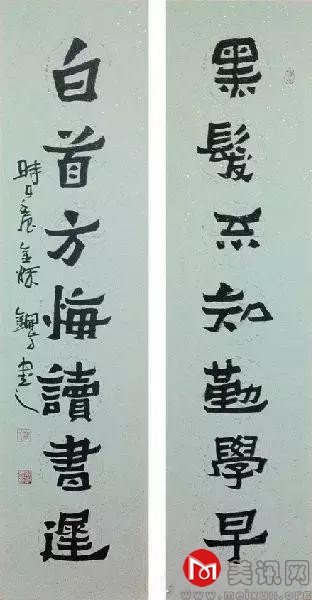 黑髮不知勤學早
白首方悔讀書遲
時 金秋 書
美讯网
www.meixun.org